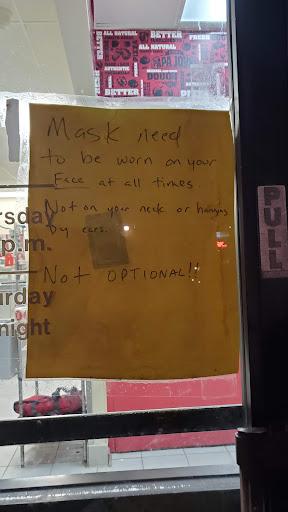 ALL NATURAL
BETTER
FRESH
ALL NATURAL
AUTHENTIC
PAPA JOHN
DOUGH
BETTER
Mask need
to be worn on your
Face at all times.
Not on your neck or hanging
by ears.
Not OPTIONAL!!
rsday
p.m.
urday
night
PULL